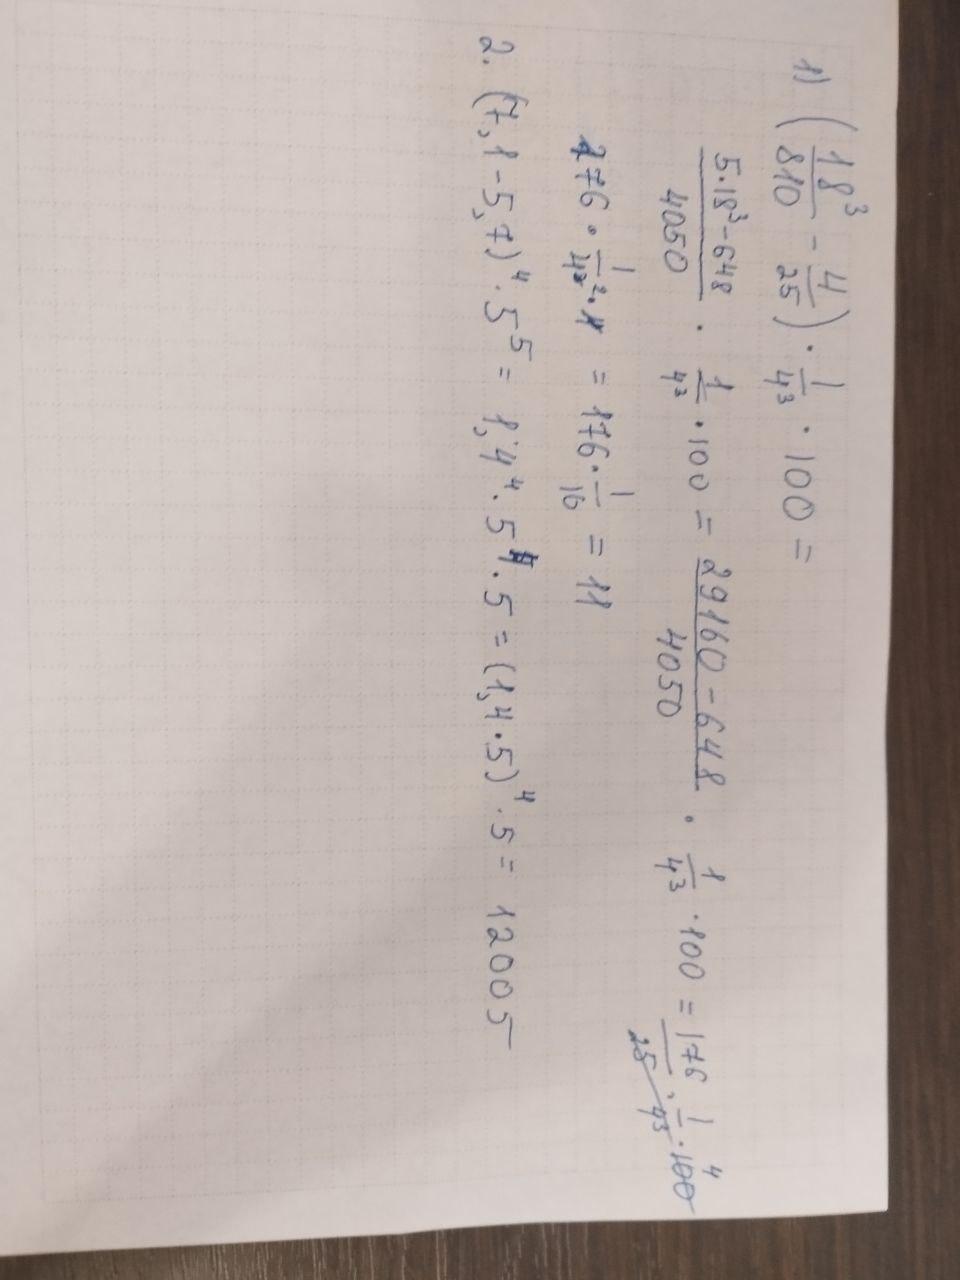 1) (18³/810 - 4/25) · 1/4³ · 100 =
(5·18³-648)/4050 · 1/4³ · 100 = (29160-648)/4050 · 1/4³ · 100 = 176/25 · 1/4³ · 100 4
176 · 1/4³ ² · 1 = 176 · 1/16 = 11
2. (7,1-5,7)⁴ · 5⁵ = 1,4⁴ · 5⁴ · 5 = (1,4·5)⁴ · 5 = 12005